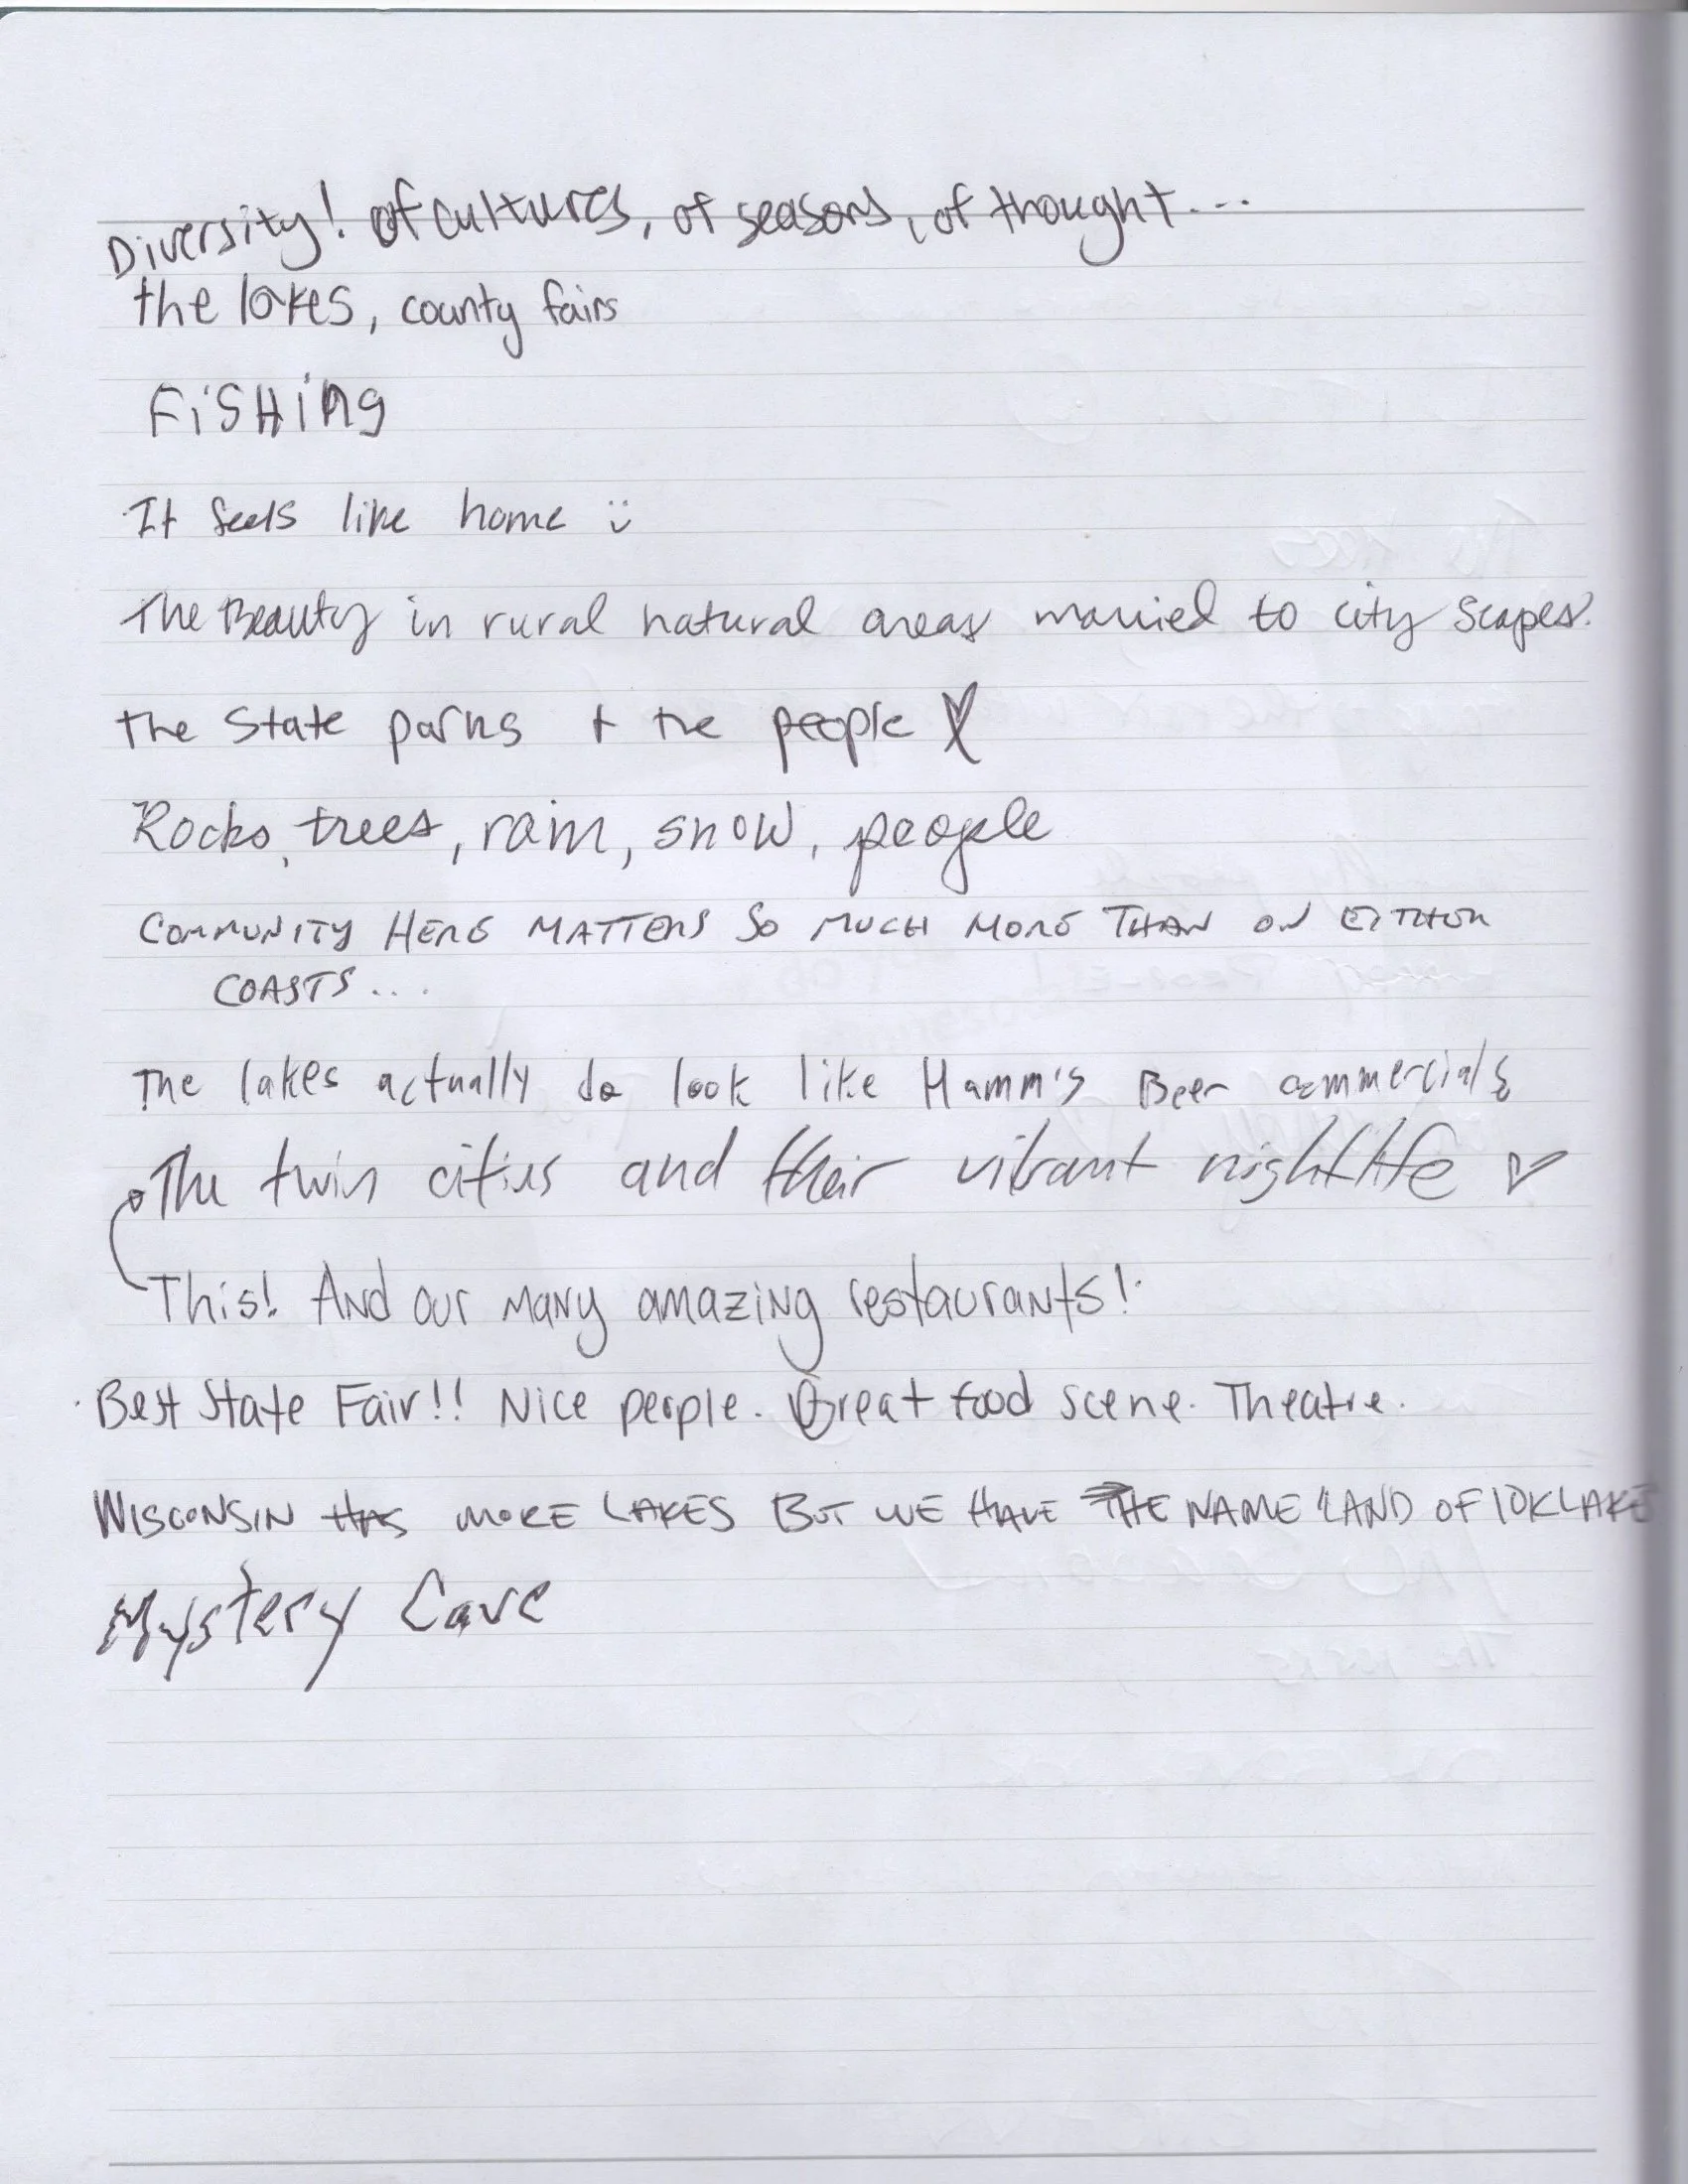 Diversity! of cultures, of seasons, of thought...
the lakes, county fairs
FiSHing
It feels like home :)
The Beauty in rural natural areas married to city scapes.
The State parks + the people ♡
Rocks, trees, rain, snow, people
COMMUNITY HERE MATTERS SO MUCH MORE THAN ON EITHER
COASTS...
The lakes actually do look like Hamm's Beer commercials
The twin cities and their vibrant nightlife ♡
This! And our many amazing restaurants!
Best State Fair!! Nice people. Great food scene. Theatre.
WISCONSIN HAS MORE LAKES BUT WE HAVE THE NAME "LAND OF 10K LAKES
Mystery Cave